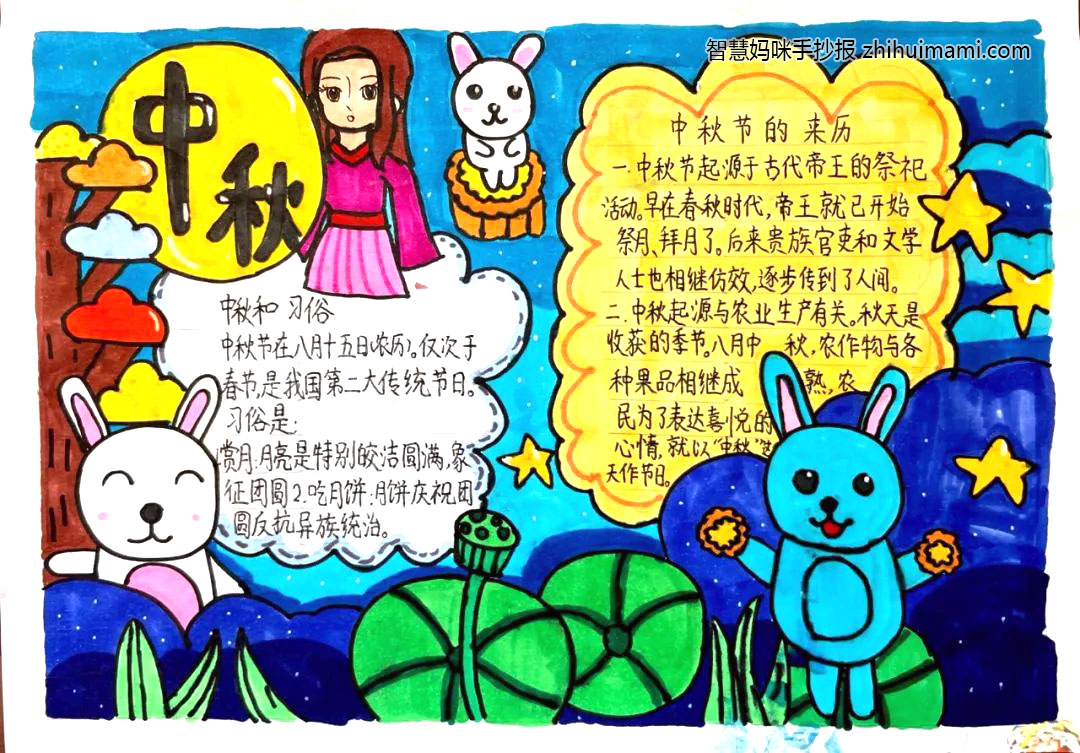 智慧妈咪手抄报 zhihuimami.com
中秋
中秋和 习俗
中秋节在八月十五日(农历)。仅次于
春节,是我国第二大传统节日。
习俗是:
赏月:月亮是特别皎洁圆满,象
征团圆2.吃月饼:月饼庆祝团
圆反抗异族统治。
中秋节的来历
一.中秋节起源于古代帝王的祭祀
活动。早在春秋时代,帝王就已开始
祭月、拜月了。后来贵族官吏和文学
人士也相继仿效,逐步传到了人间。
二.中秋起源与农业生产有关。秋天是
收获的季节。八月中 秋,农作物与各
种果品相继成 熟,农
民为了表达喜悦的
心情,就以"中秋"这
天作节日。